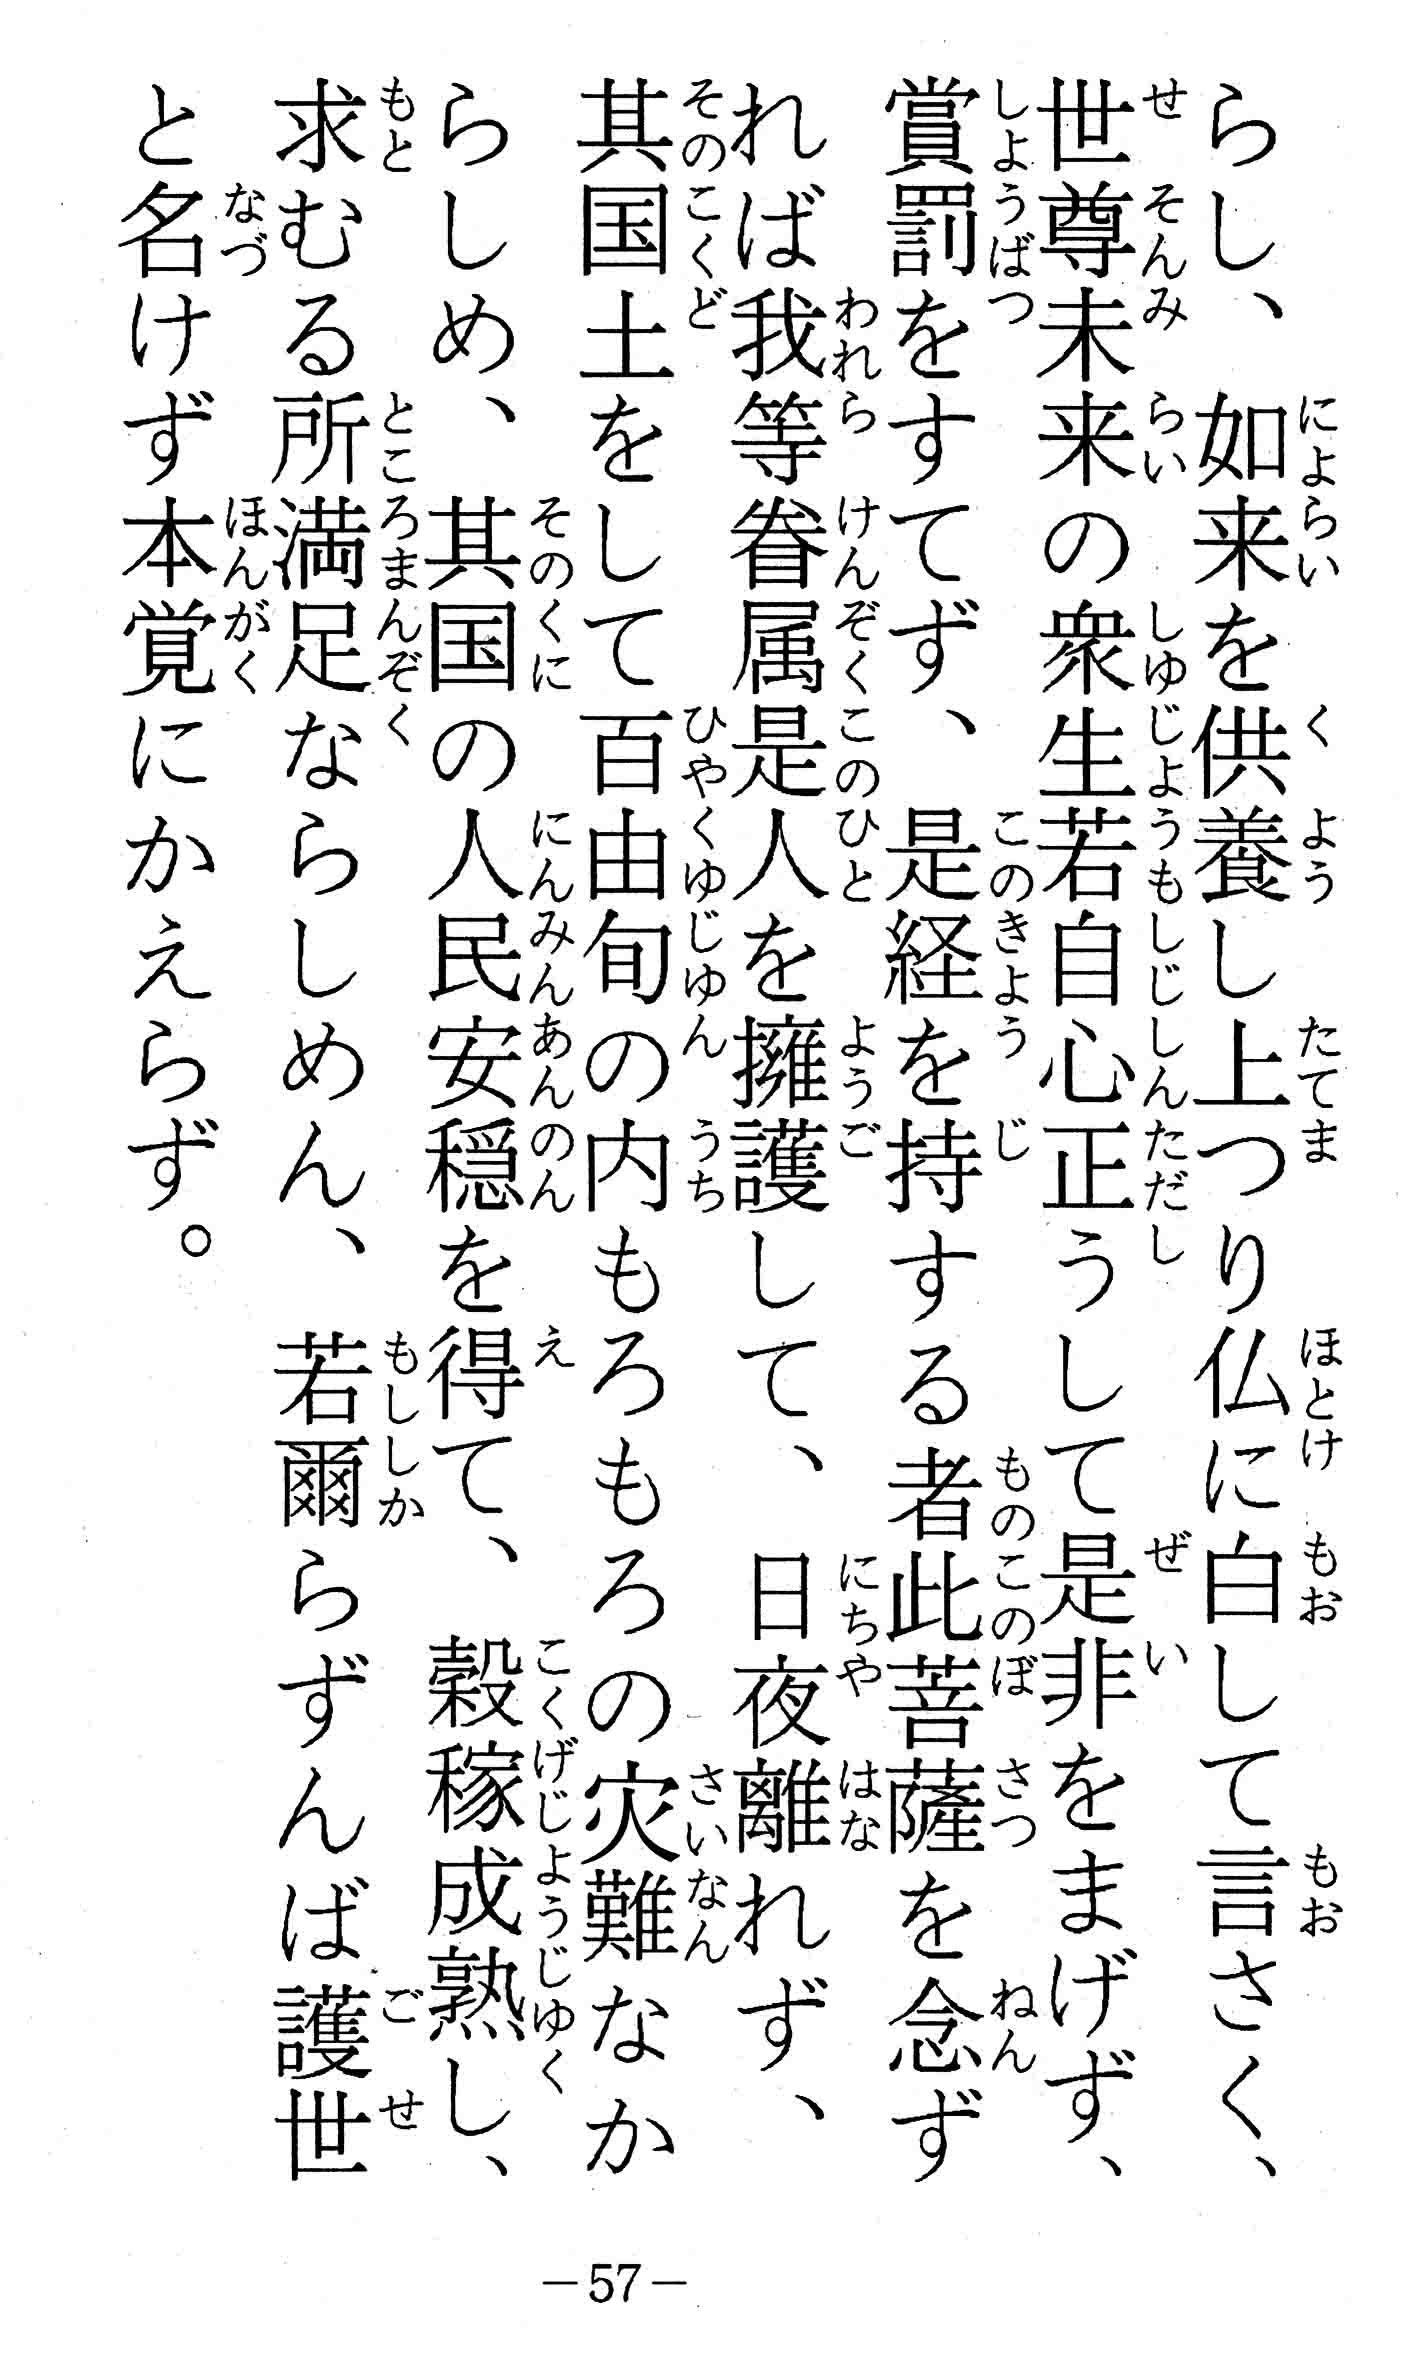 らし、如来を供養し上つり仏に白して言さく、
世尊未来の衆生若自心正うして是非をまげず、
賞罰をすてず、是経を持する者此菩薩を念ず
れば我等眷属是人を擁護して、日夜離れず、
其国土をして百由旬の内もろもろの災難なか
らしめ、其国の人民安穏を得て、穀稼成熟し、
求むる所満足ならしめん、若爾らずんば護世
と名けず本覚にかえらず。
—57—